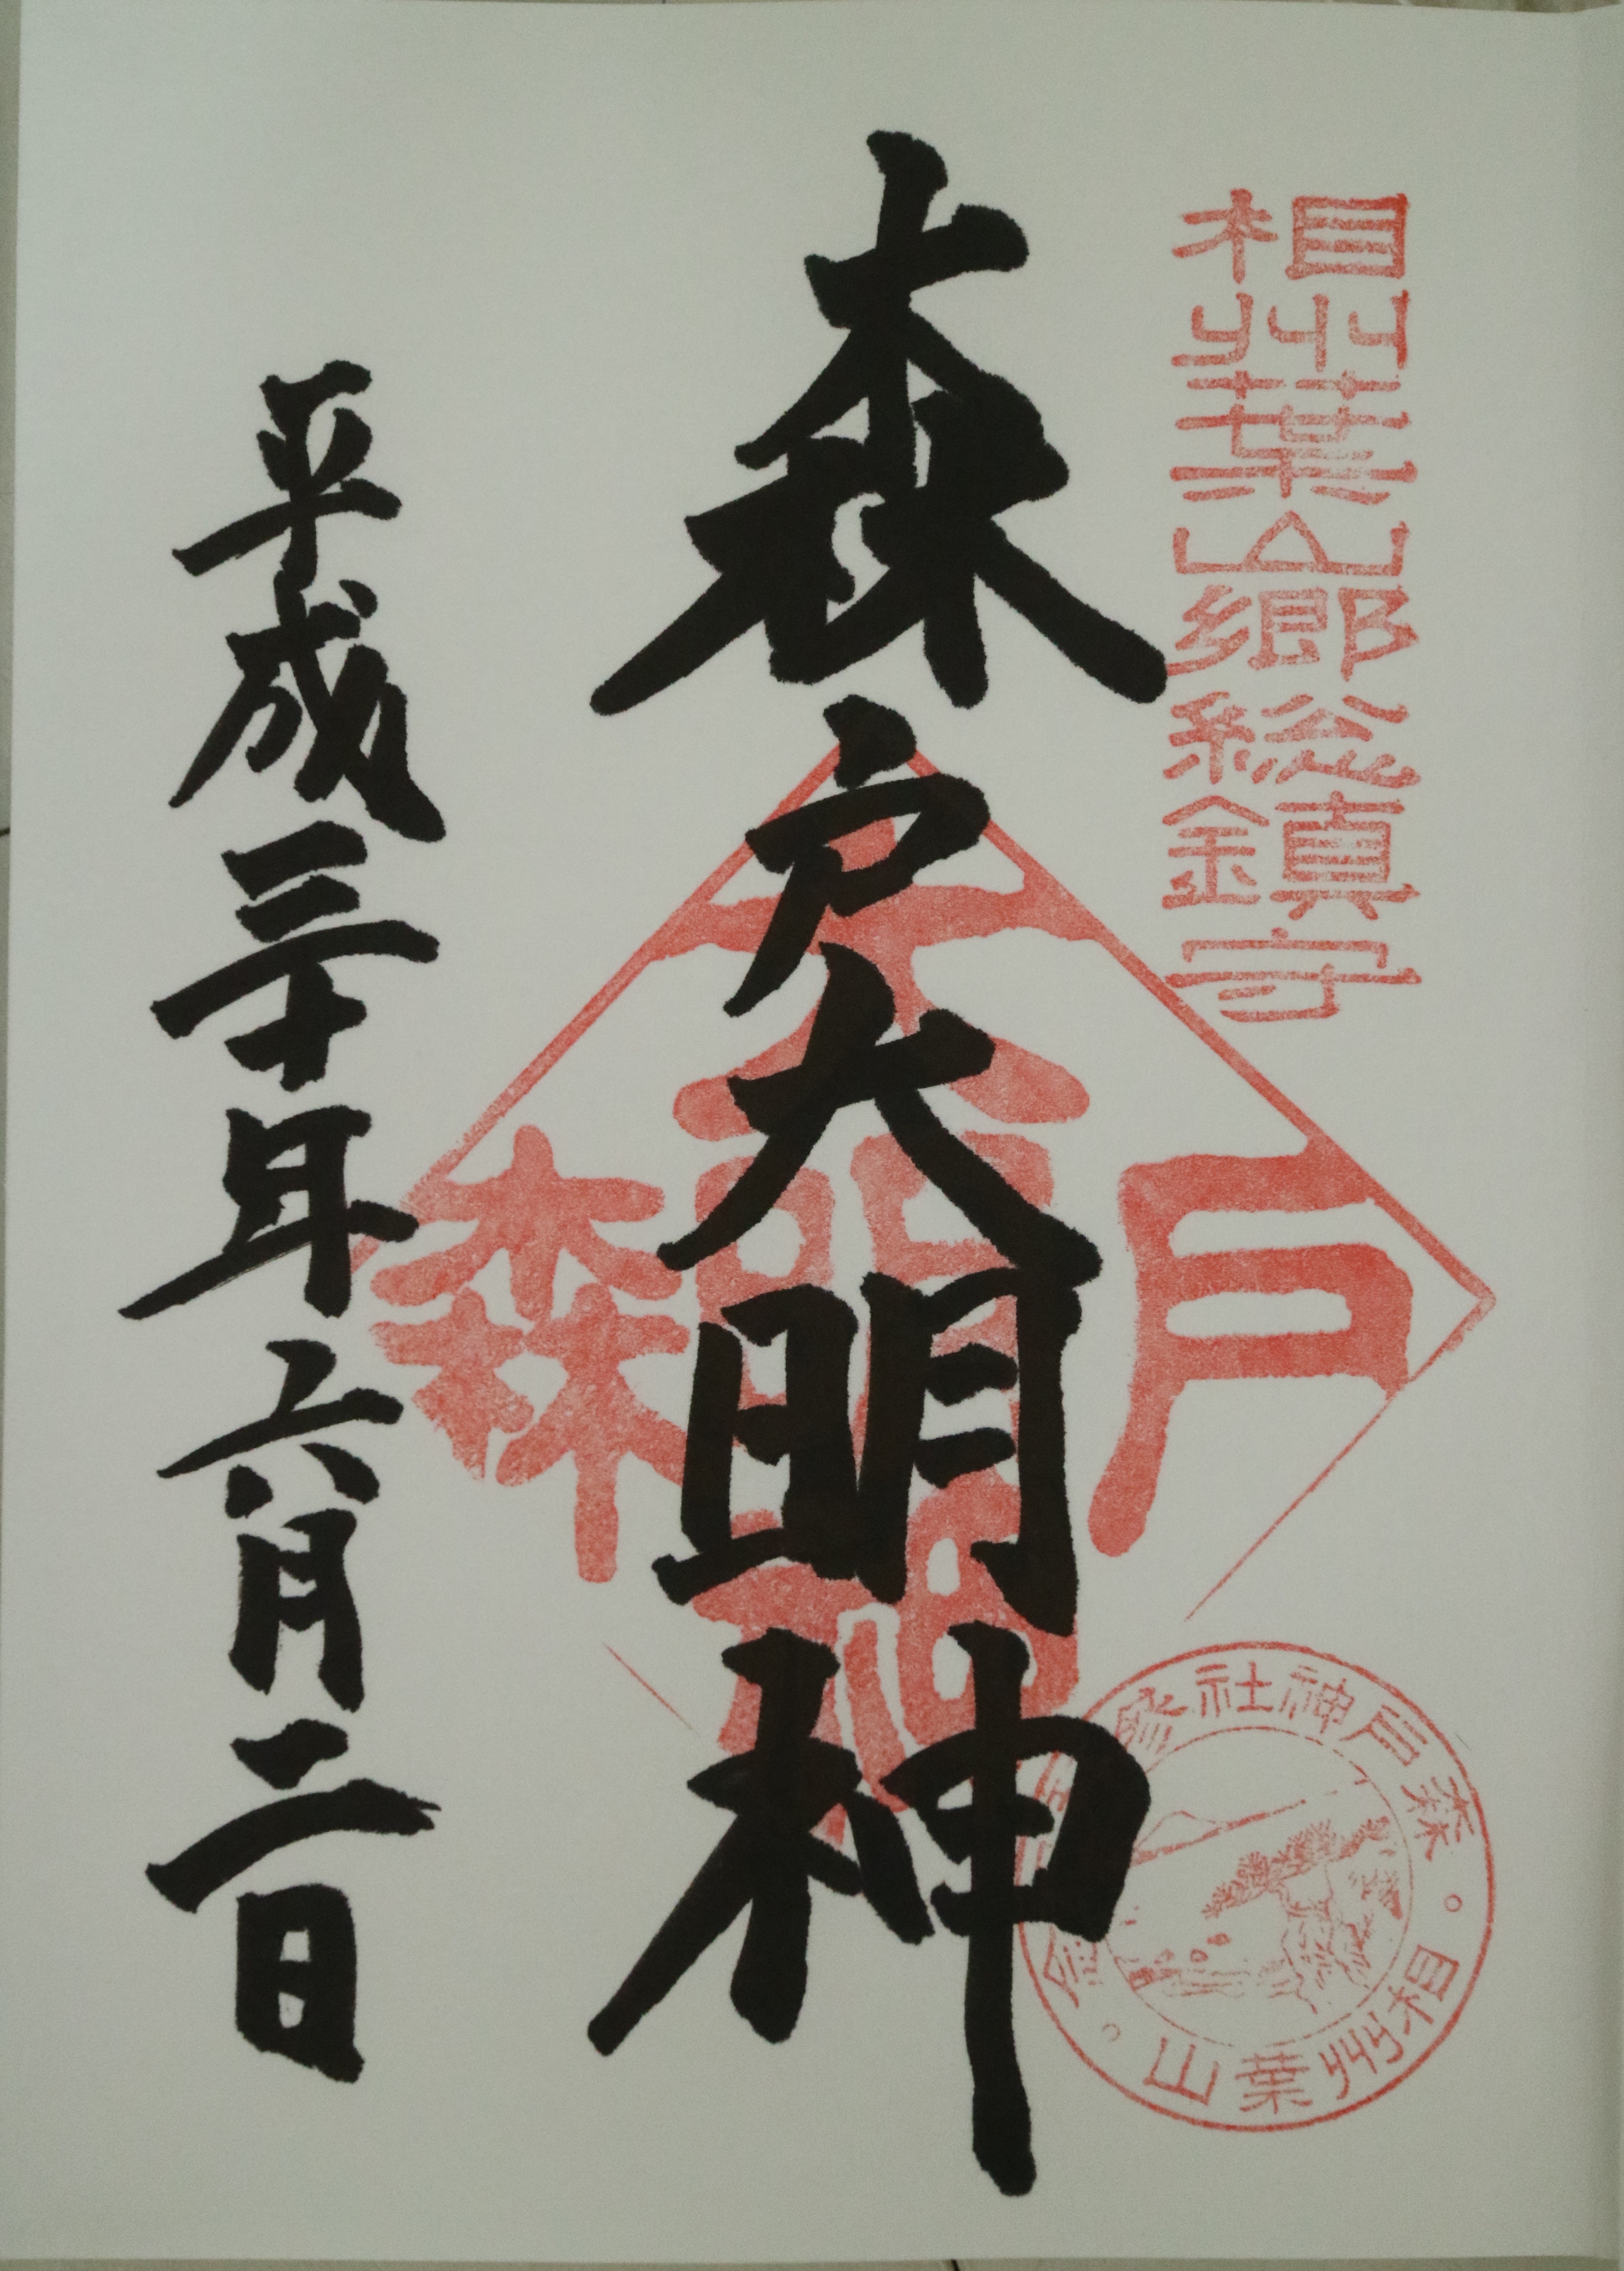 相州葉山郷総鎮守
森戸大明神
平成三十年六月二日
森戸
大明神
森戸神社
相州葉山